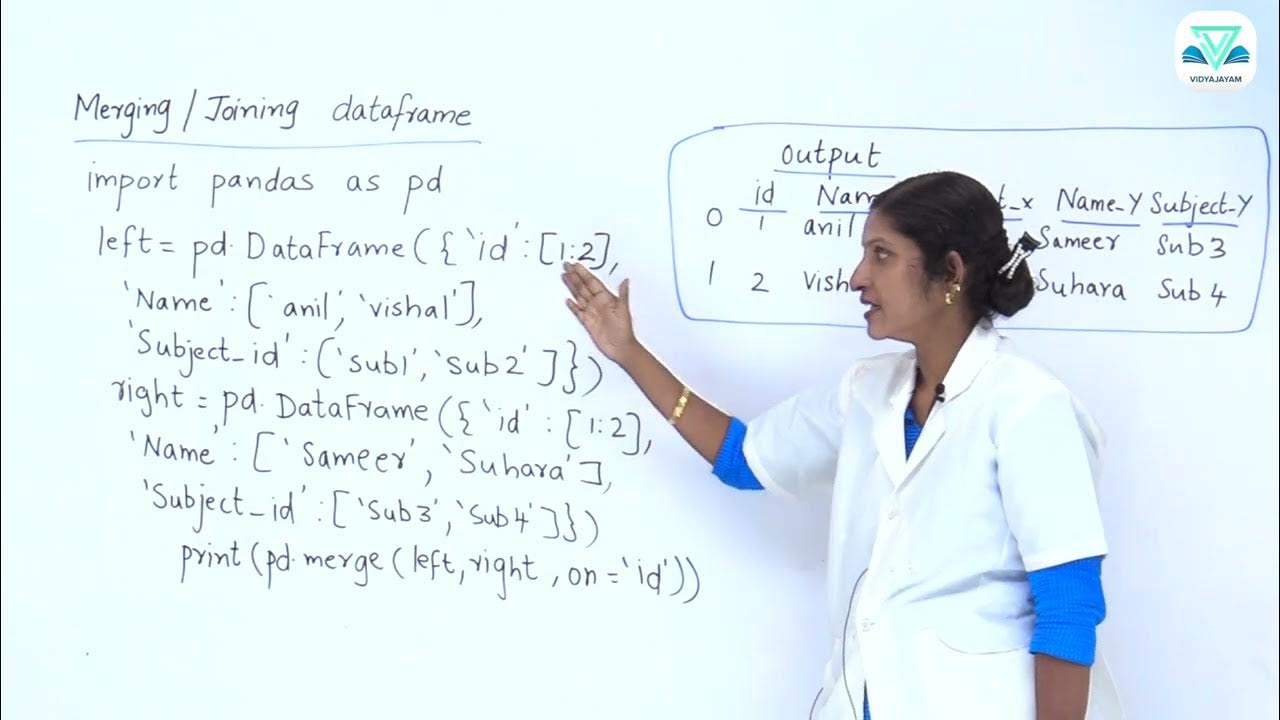 Merging / Joining dataframe
import pandas as pd
left = pd.DataFrame({'id':[1:2],
'Name':['anil','vishal'],
'Subject_id':['Sub1','Sub2']})
right = pd.DataFrame({'id':[1:2],
'Name':['Sameer','Suhara'],
'Subject_id':['Sub3','Sub4']})
print(pd.merge(left,right,on='id'))
output
id Name_Y Subject_Y
0 1 anil Sameer Sub3
1 2 Suhara Sub4
VIDYAJAYAM